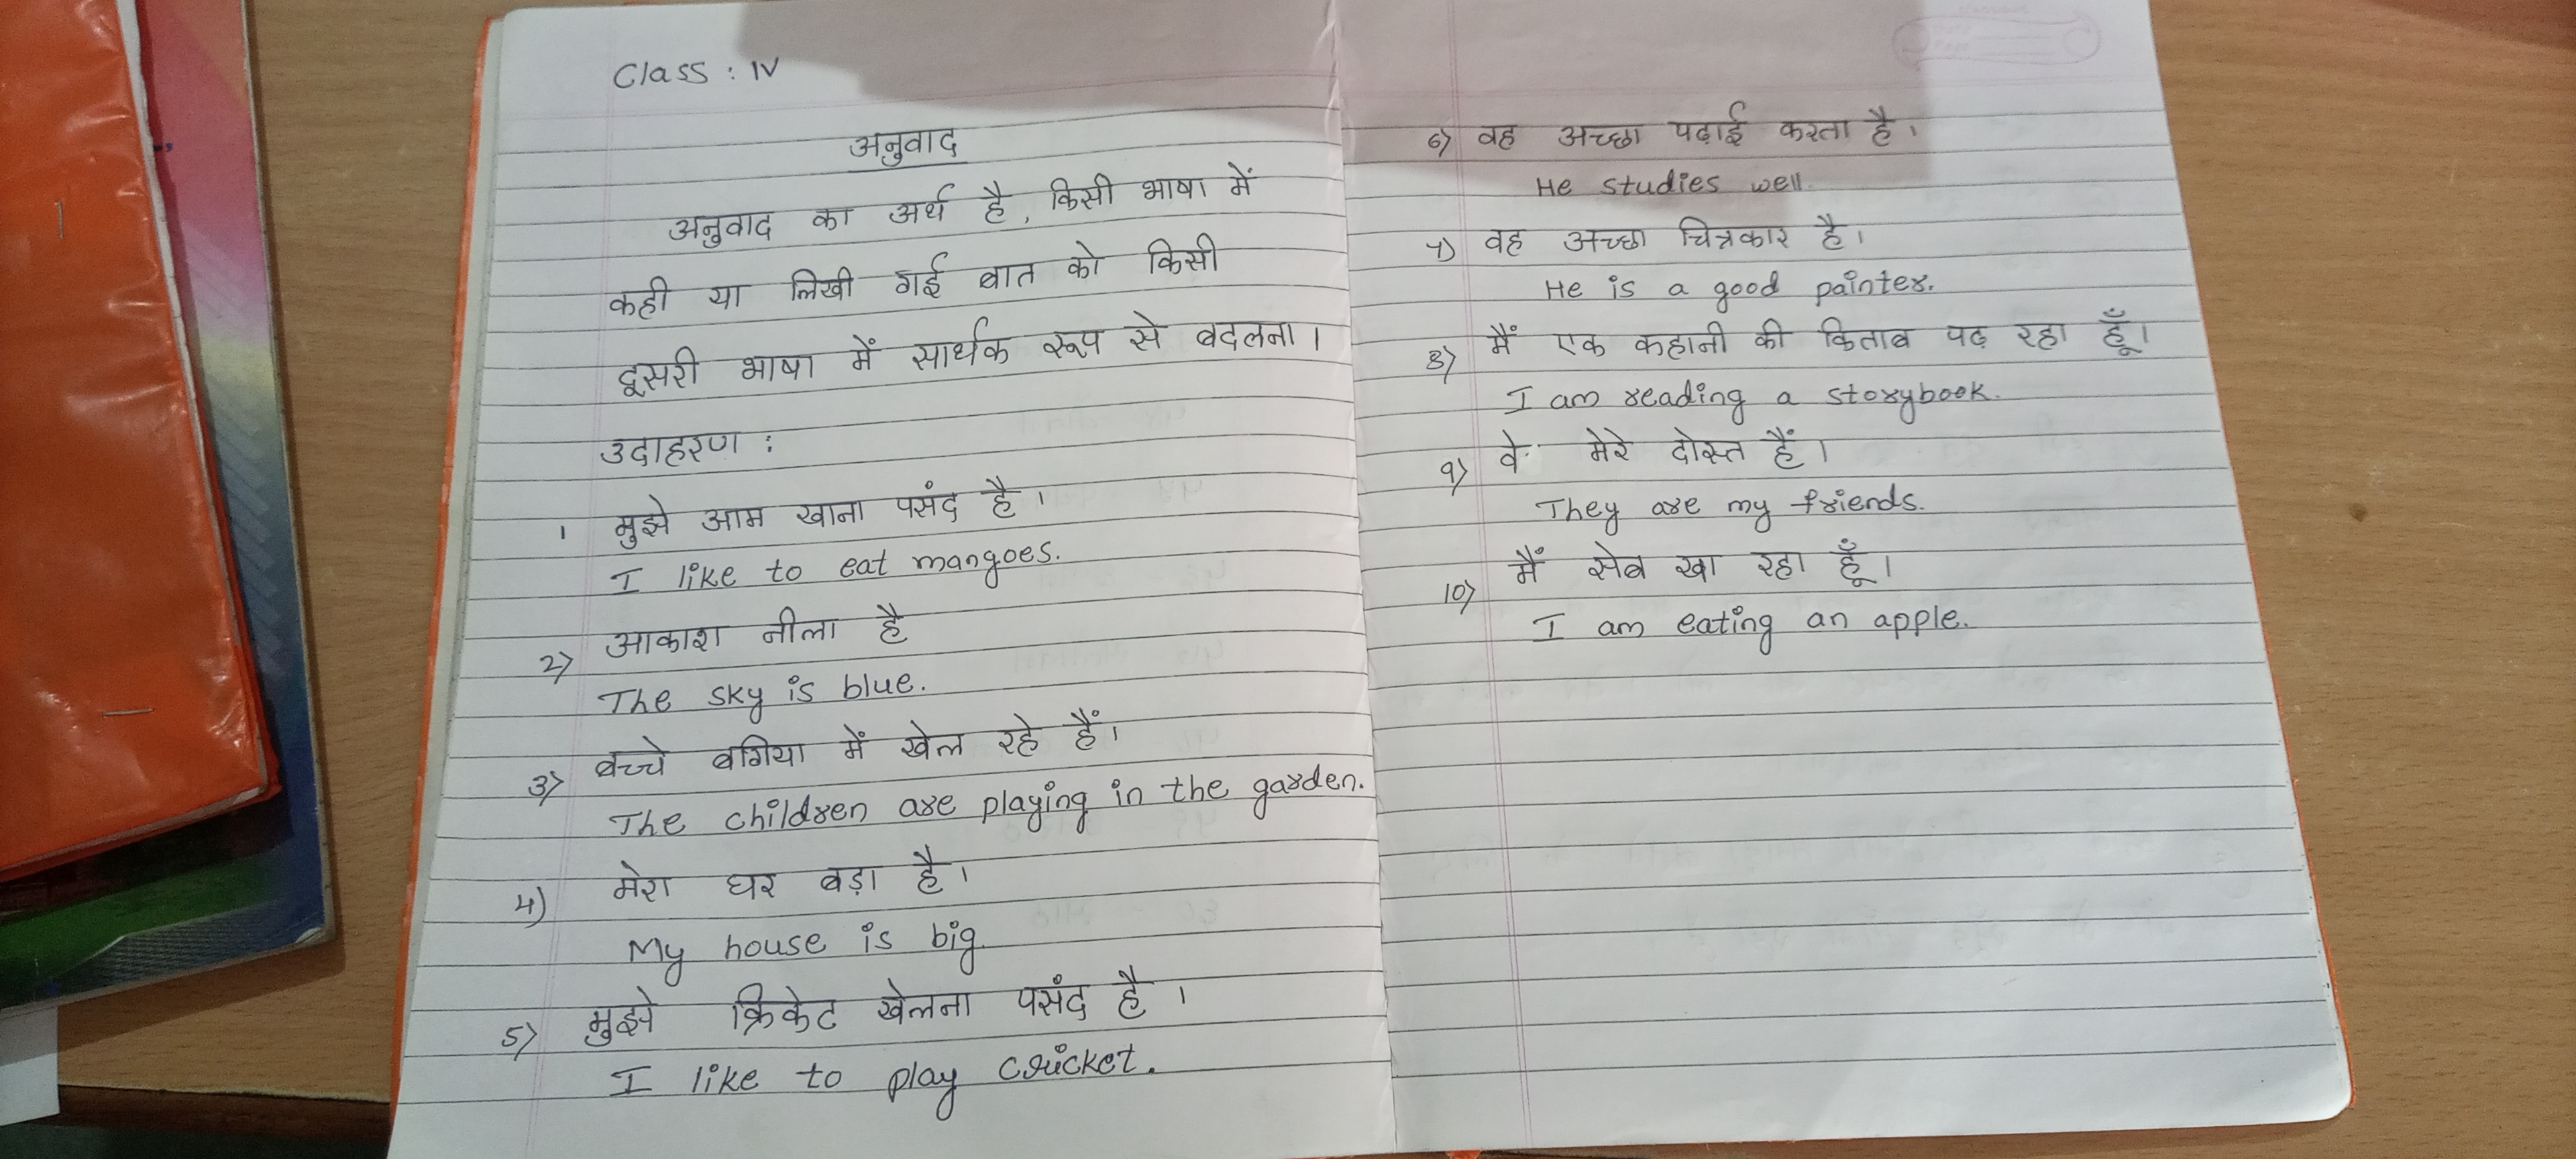 Class : IV
अनुवाद
अनुवाद का अर्थ है, किसी भाषा में
कही या लिखी गई बात को किसी
दूसरी भाषा में सार्थक रूप से बदलना।
उदाहरण :
1 मुझे आम खाना पसंद है।
I like to eat mangoes.
2) आकाश नीला है
The sky is blue.
3) बच्चे बगिया में खेल रहे हैं।
The children are playing in the garden.
4) मेरा घर बड़ा है।
My house is big.
5) मुझे क्रिकेट खेलना पसंद है।
I like to play cricket.
6) वह अच्छा पढ़ाई करता है।
He studies well.
7) वह अच्छा चित्रकार है।
He is a good painter.
8) मैं एक कहानी की किताब पढ़ रहा हूँ।
I am reading a storybook.
9) वे मेरे दोस्त हैं।
They are my friends.
10) मैं सेब खा रहा हूँ।
I am eating an apple.